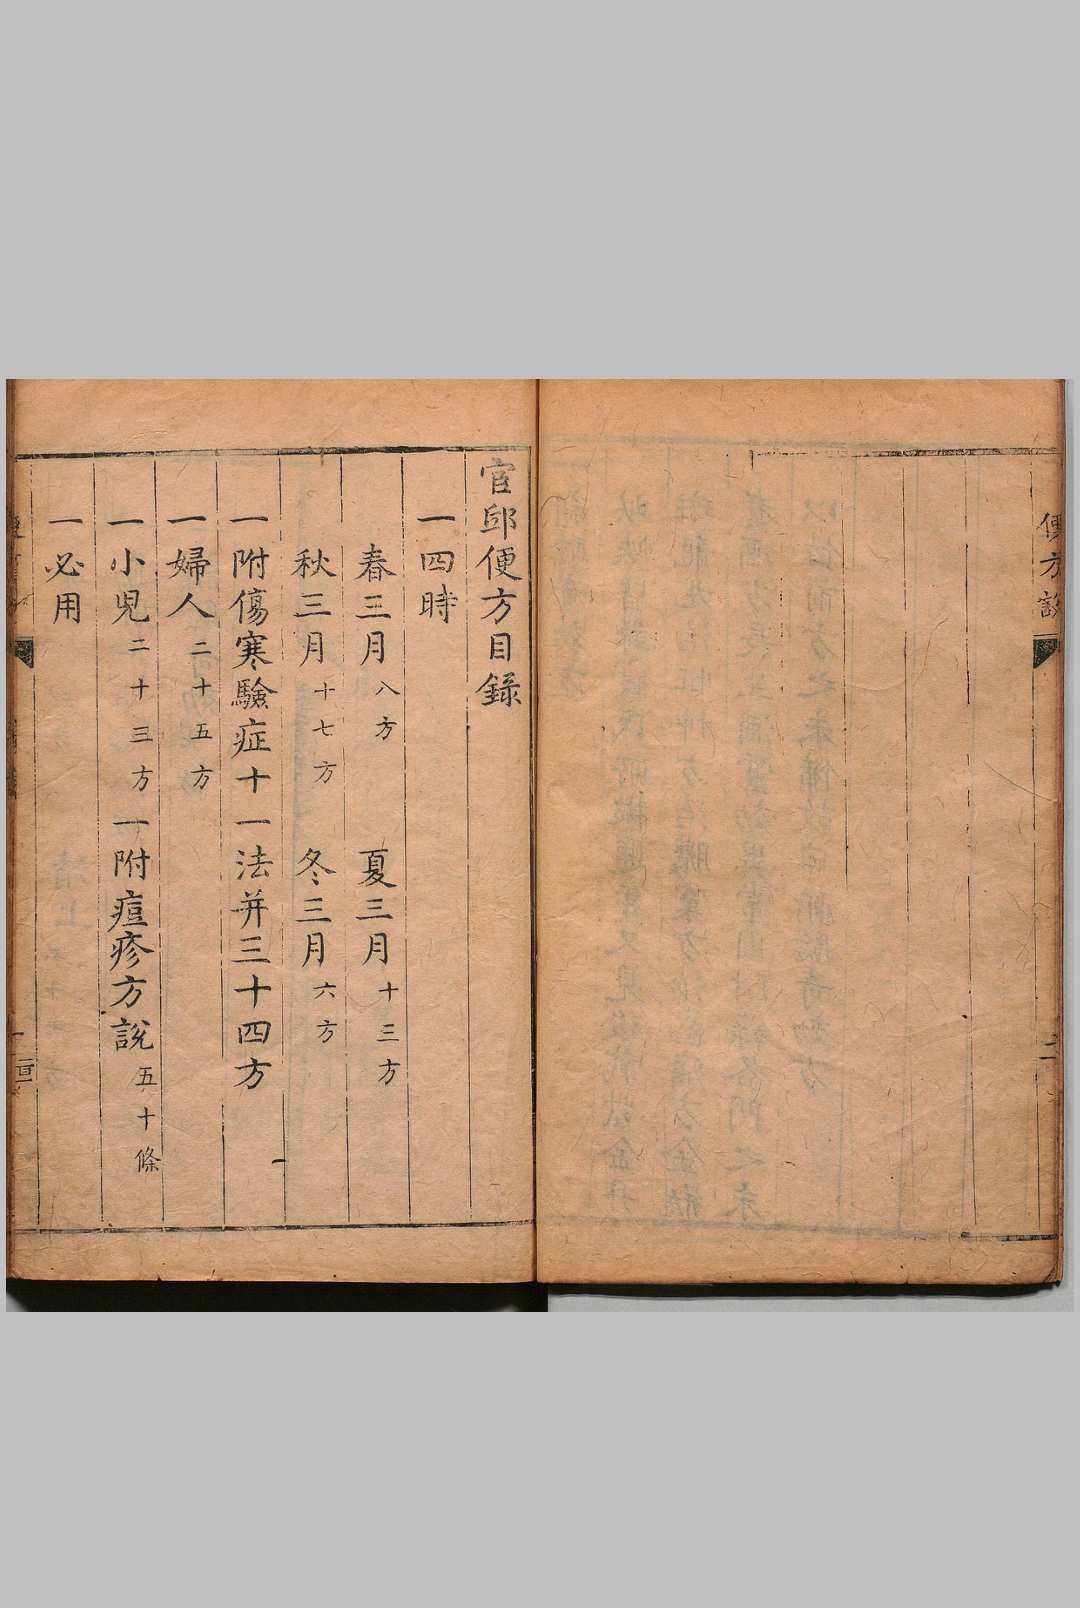 便方說
二
官邱便方目錄
一四時
春三月八方 夏三月十三方
秋三月十七方 冬三月六方
一附傷寒驗症十一法并三十四方
一婦人二十五方
一小兒二十三方 一附痘疹方說五十條
一必用